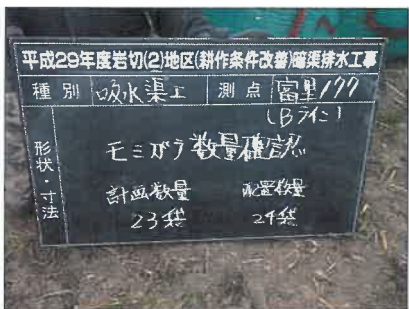 平成29年度岩切(2)地区(耕作条件改善)暗渠排水工事
種別 吸水渠工 測点 富里177
(Bライン)
形状・寸法
モミガラ数量確認
計画数量 配置数量
23袋 24袋